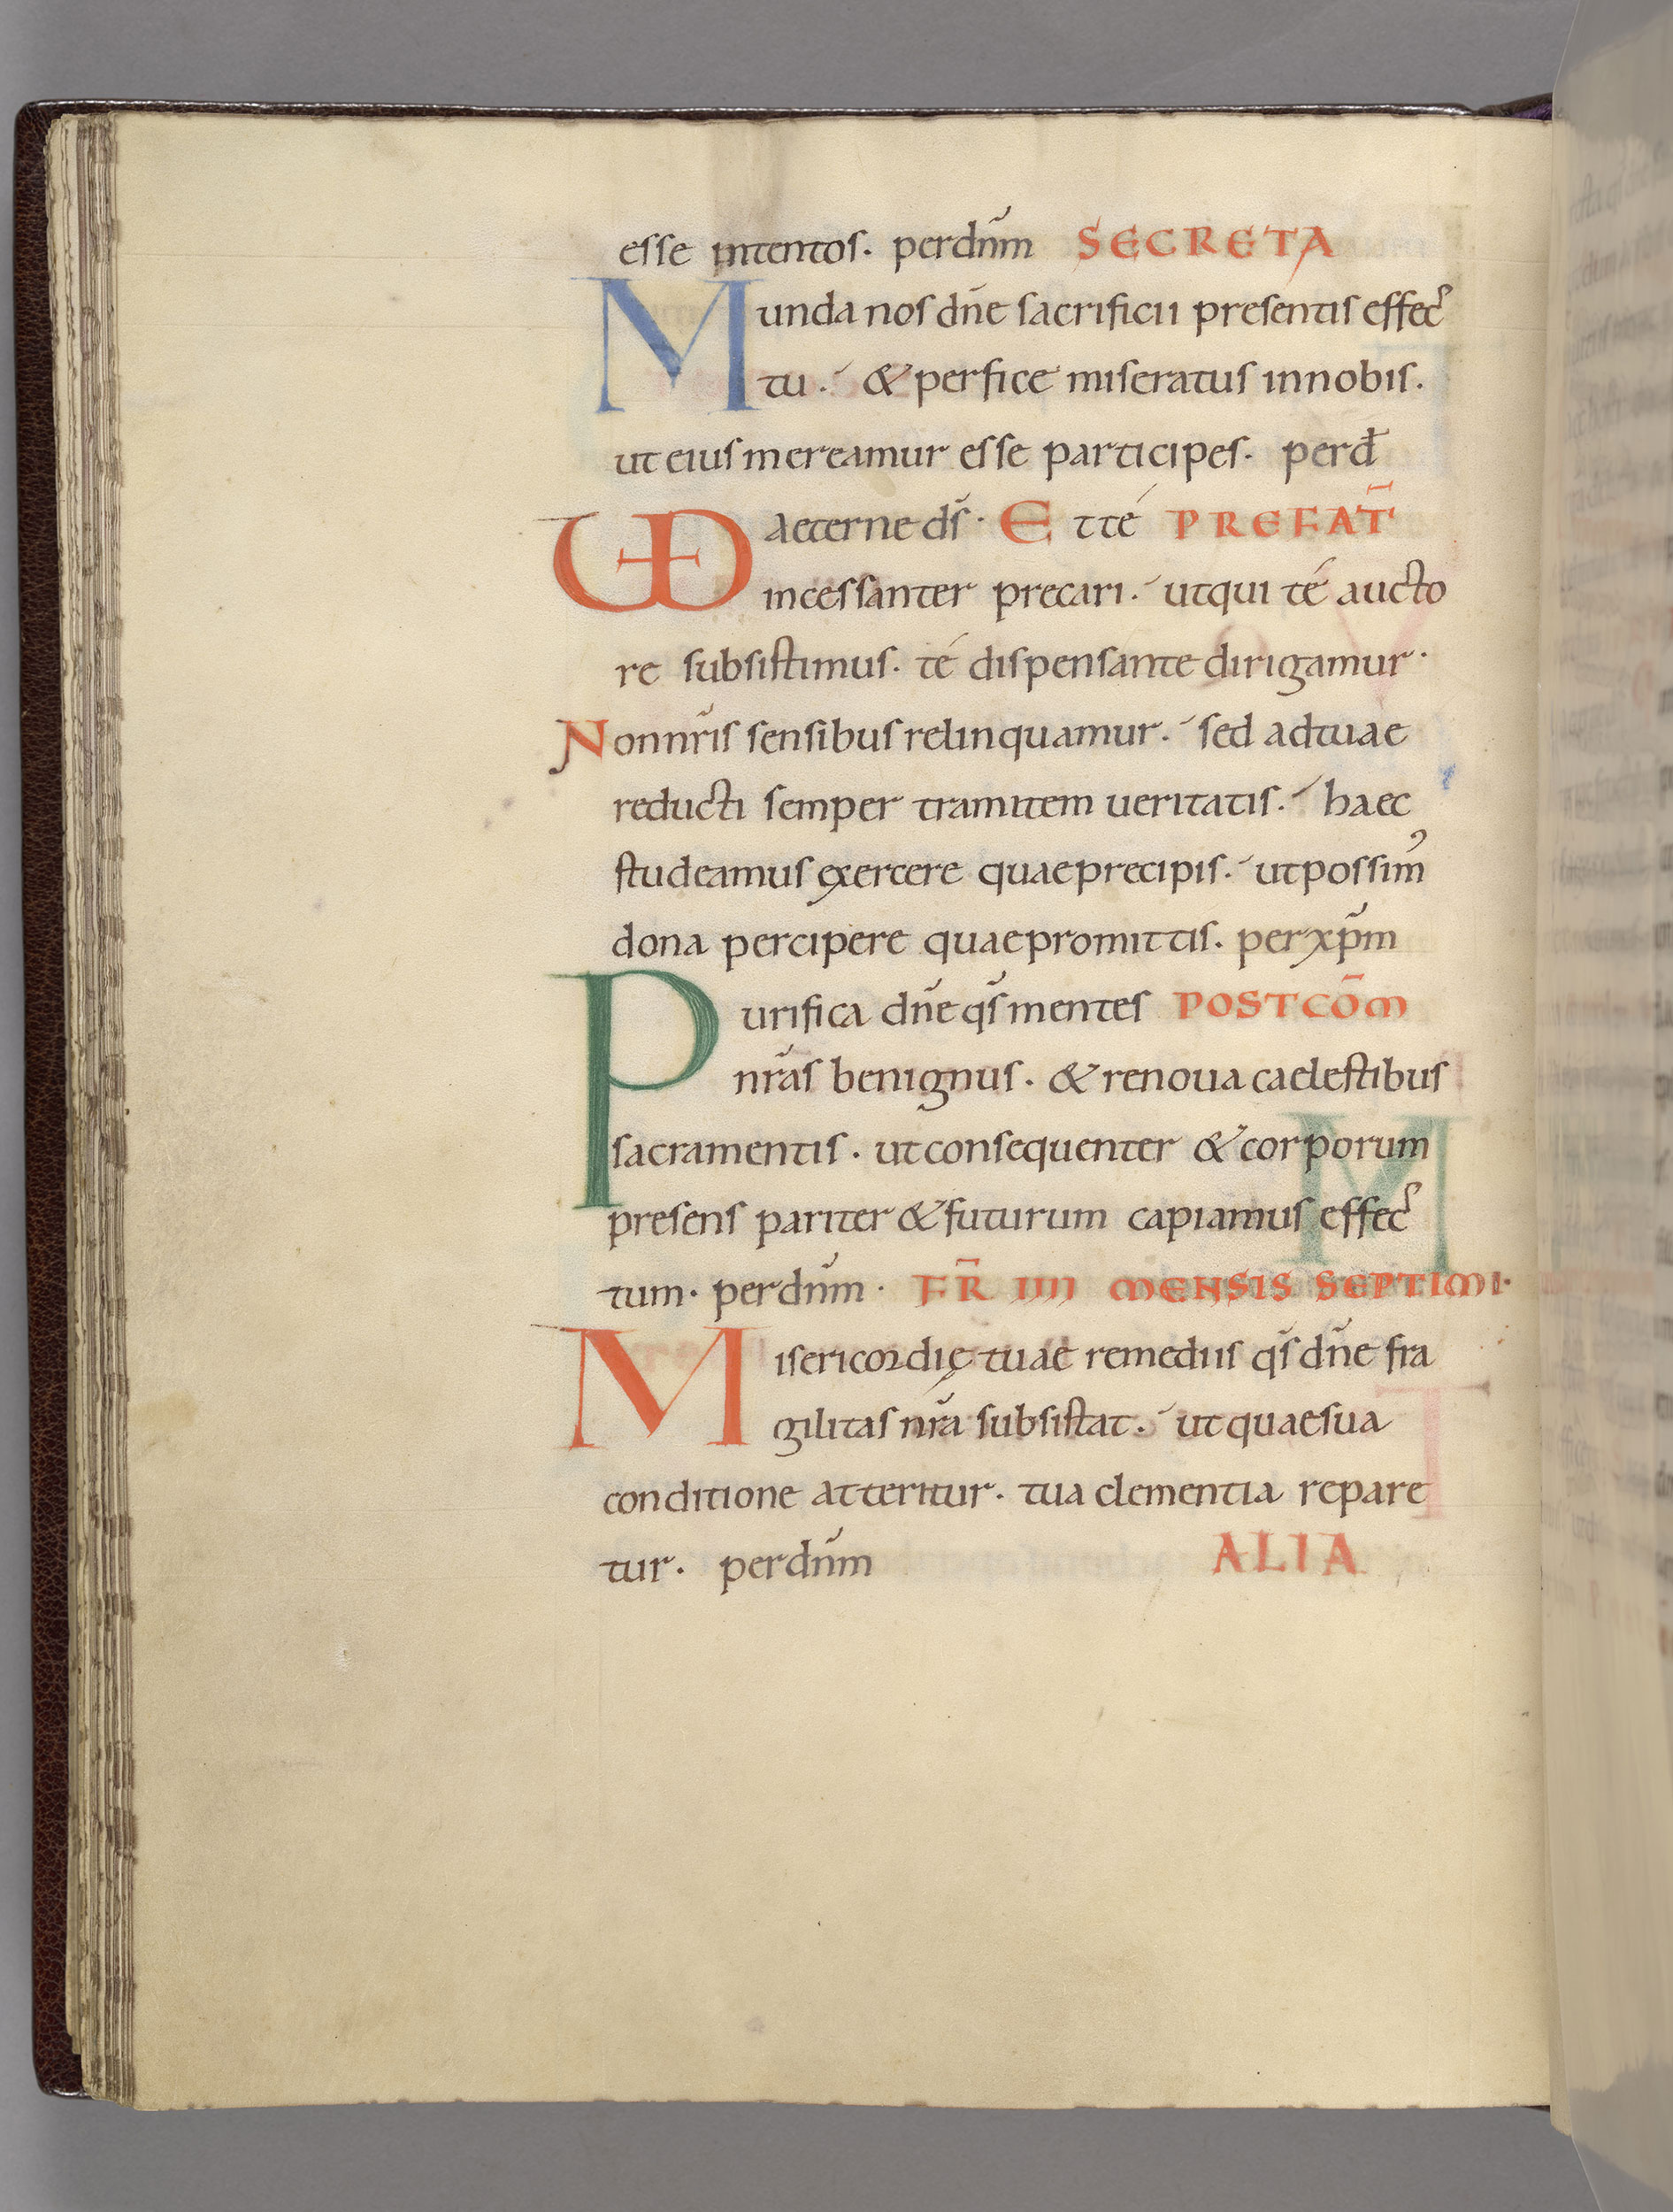 esse intentos. perdnm̃ SECRETA
Munda nos dñe sacrificii presentis effec
tu. & perfice miseratus innobis.
ut eius mereamur esse participes. perd̄
VD aeterne ds̃. Et té PREFAT̄
incessanter precari. utqui té aucto
re subsistimus. té dispensante dirigamur.
Nonnr̃is sensibus relinquamur. sed adtuae
reducti semper tramitem ueritatis. haec
studeamus exercere quaeprecipis. utpossim᾽
dona percipere quaepromittis. perxp̃m
Purifica dñe qs̃ mentes POSTCOM̄
nr̃as benignus. & renoua caelestibus
sacramentis. utconsequenter & corporum
presens pariter & futurum capiamus effec
tum. perdnm̃. FR̄ IIII MENSIS SEPTIMI.
Misericordię tuae remediis qs̃ dñe fra
gilitas nr̃a subsistat. ut quaesua
conditione atteritur. tua clementia repare
tur. perdnm̃ ALIA